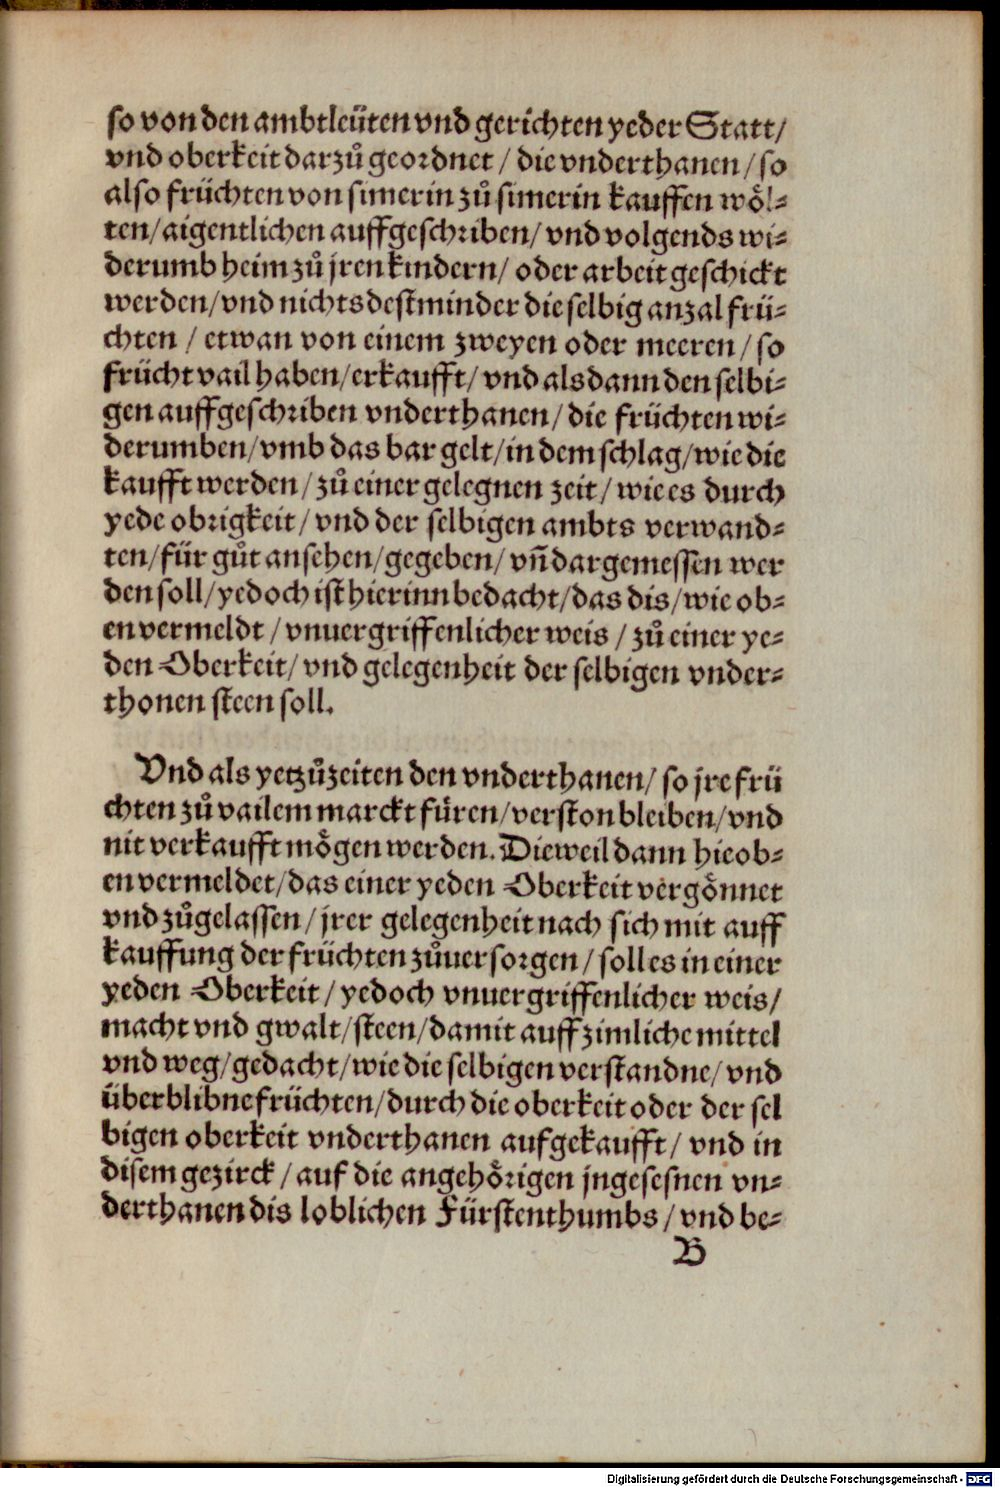 so von den ambtleüten vnd gerichten yeder Statt/
vnd oberkeit darzů geordnet / die vnderthanen / so
also früchten von simerin zů simerin kauffen wöl-
ten/aigentlichen auffgeschriben/ vnd volgends wi-
derumb heim zů jren kindern/ oder arbeit geschickt
werden/vnd nichts destminder die selbig anzal frü-
chten / etwan von einem zweyen oder meeren / so
frücht vail haben/erkaufft/ vnd als dann den selbi-
gen auffgeschriben vnderthanen/ die früchten wi-
derumben/vmb das bar gelt/in dem schlag/wie die
kaufft werden/ zů einer gelegnen zeit/ wie es durch
yede obrigkeit/ vnd der selbigen ambts verwand-
ten/für gůt ansehen/gegeben/ vñ dargemessen wer
den soll/yedoch ist hierinn bedacht/das dis/wie ob-
en vermeldt / vnuergriffenlicher weis / zů einer ye-
den Oberkeit/ vnd gelegenheit der selbigen vnder-
thonen steen soll.
Vnd als yetzůzeiten den vnderthanen/ so jre frü
chten zů vailem marckt füren/verston bleiben/vnd
nit verkaufft mögen werden. Dieweil dann hieob-
en vermeldet/das einer yeden Oberkeit vergönnet
vnd zůgelassen/jrer gelegenheit nach sich mit auff
kauffung der früchten zůuersorgen/ soll es in einer
yeden Oberkeit / yedoch vnuergriffenlicher weis/
macht vnd gwalt/steen/damit auff zimliche mittel
vnd weg/gedacht/wie die selbigen verstandne/ vnd
überblibne früchten/durch die oberkeit oder der sel
bigen oberkeit vnderthanen aufgekaufft/ vnd in
disem gezirck / auf die angehörigen jngesesnen vn-
derthanen dis loblichen Fürstenthumbs / vnd be-
B
Digitalisierung gefördert durch die Deutsche Forschungsgemeinschaft - DFG